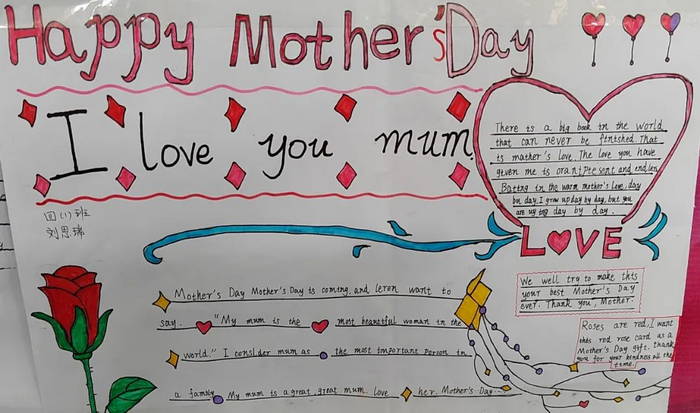 Happy Mother's Day
I love you mum
There is a big book in the world
that can never be finished. That
is mother's love. The love you have
given me is oranipresent and endlen,
Bating in the warm mother's love, day
by day I grow up day by day, but you
are ug ing day by day.
LOVE
四(1)班
刘思瑞
Mother's Day Mother's Day is coming, and leren want to
say.. "My mum is the most beautiful woman in the
world." I consider mum as the most important person in
a family My mum is a great great mum love her Mother's Day...
We well try to make this
your best Mother's Day
ever. Thank you, Mother.
Roses are red, I want
this red rose card as a
Mother's Day gift. thank
you for your kindness all the
time.